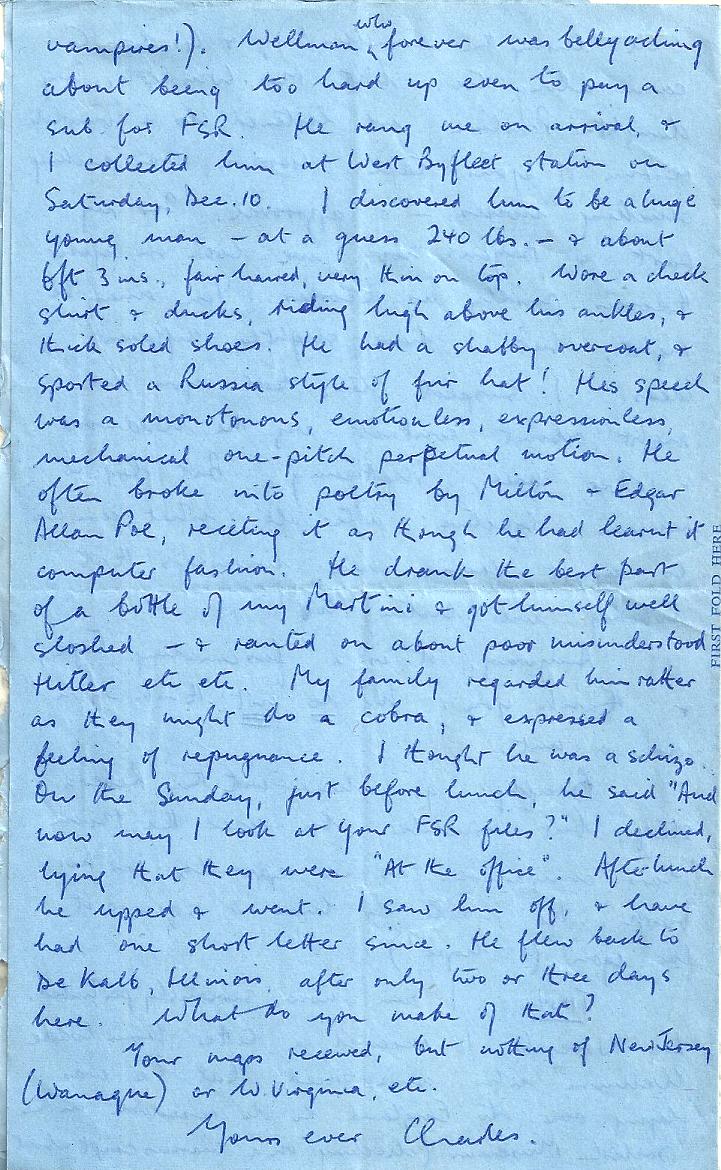 who
vampires!). Wellman forever was bellyaching
about being too hard up even to pay a
sub for FSR. He rang me on arrival, &
I collected him at West Byfleet station on
Saturday, Dec. 10. I discovered him to be a huge
young man – at a guess 240 lbs. – & about
6ft 3 ins., fair haired, very thin on top. Wore a check
shirt & ducks, riding high above his ankles, &
thick soled shoes. He had a shabby overcoat, &
sported a Russia style of fur hat! His speech
was a monotonous, emotionless, expressionless,
mechanical one-pitch perpetual motion. He
often broke into poetry by Milton & Edgar
Allan Poe, reciting it as though he had learnt it
computer fashion. He drank the best part
of a bottle of my Martini & got himself well
sloshed – & ranted on about poor misunderstood
Hitler etc etc. My family regarded him rather
as they might do a cobra, & expressed a
feeling of repugnance. I thought he was a schizo.
On the Sunday, just before lunch, he said "And
now may I look at your FSR files?" I declined,
lying that they were "At the office". After lunch
he upped & went. I saw him off, & have
had one short letter since. He flew back to
De Kalb, Illinois, after only two or three days
here. What do you make of that?
Your maps received, but nothing of New Jersey
(Wanaque) or W. Virginia, etc.
Yours ever Charles.
FIRST FOLD HERE